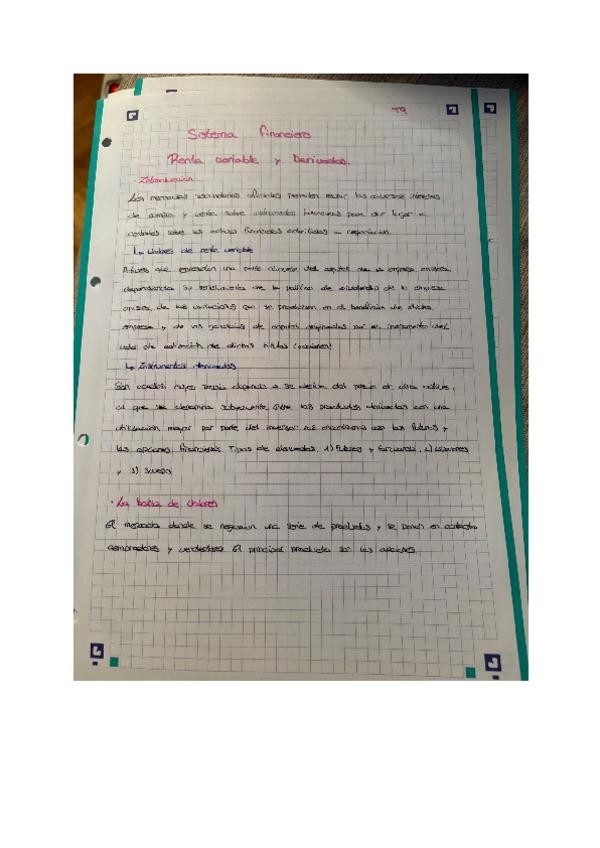 T9
Sistema financiero
Renta variable y Derivados.
· Introducción
Los mercados secundarios oficiales permiten reunir los diversos intereses
de compra y venta sobre instrumentos financieros para dar lugar a
contratos sobre los activos financieros admitidos a negociación.
↳ Valores de renta variable
Activos que representan una parte alícuota del capital de la empresa emisora,
dependiendo su rendimiento de la política de dividendos de la empresa
emisora, de las variaciones que se produzcan en el beneficio de dicha
empresa y de las ganancias de capital originadas por el incremento del
valor de cotización de dichos títulos (acciones).
↳ Instrumentos derivados
Son aquellos cuyo precio depende o se deriva del precio de otro activo,
al que se denomina subyacente. Entre los productos derivados con una
utilización mayor por parte del inversor nos encontramos con los futuros y
las opciones financieras. Tipos de derivados, 1) Futuros y forwards, 2) opciones
y 3) Swaps
· La bolsa de valores
El mercado donde se negocian una serie de productos y se ponen en contacto
compradores y vendedores. El principal producto son las acciones.